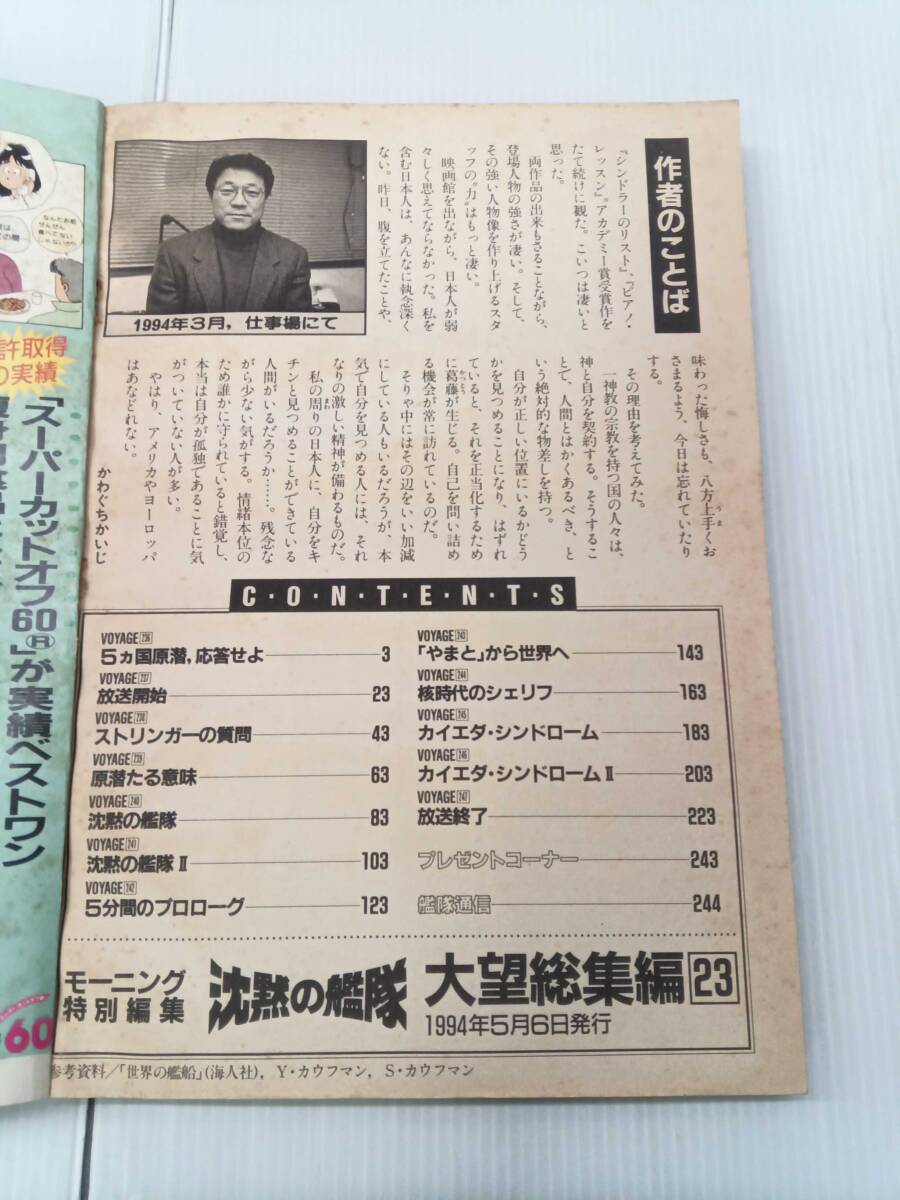 作者のことば
『シンドラーのリスト』、『ピアノ・
レッスン』。アカデミー賞受賞作を
たて続けに観た。こいつは凄いと
思った。
両作品の出来もさることながら、
登場人物の強さが凄い。そして、
その強い人物像を作り上げるスタ
ッフの〝力〟はもっと凄い。
映画館を出ながら、日本人が弱
々しく思えてならなかった。私を
含む日本人は、あんなに執念深く
ない。昨日、腹を立てたことや、
1994年3月，仕事場にて
味わった悔しさも、八方上手くお
さまるよう、今日は忘れていたり
する。
その理由を考えてみた。
一神教の宗教を持つ国の人々は、
神と自分を契約する。そうするこ
とで、人間とはかくあるべき、と
いう絶対的な物差しを持つ。
自分が正しい位置にいるかどう
かを見つめることになり、はずれ
ていると、それを正当化するため
に葛藤が生じる。自己を問い詰め
る機会が常に訪れているのだ。
そりゃ中にはその辺をいい加減
にしている人もいるだろうが、本
気で自分を見つめる人には、それ
なりの激しい精神が備わるものだ。
私の周りの日本人に、自分をキ
チンと見つめることができている
人間がいるだろうか……。残念な
がら少ない気がする。情緒本位の
ため誰かに守られていると錯覚し、
本当は自分が孤独であることに気
がついていない人が多い。
やはり、アメリカやヨーロッパ
はあなどれない。
かわぐちかいじ
C・O・N・T・E・N・T・S
VOYAGE 236
5ヵ国原潜，応答せよ 3
VOYAGE 237
放送開始 23
VOYAGE 238
ストリンガーの質問 43
VOYAGE 239
原潜たる意味 63
VOYAGE 240
沈黙の艦隊 83
VOYAGE 241
沈黙の艦隊Ⅱ 103
VOYAGE 242
5分間のプロローグ 123
VOYAGE 243
「やまと」から世界へ 143
VOYAGE 244
核時代のシェリフ 163
VOYAGE 245
カイエダ・シンドローム 183
VOYAGE 246
カイエダ・シンドロームⅡ 203
VOYAGE 247
放送終了 223
プレゼントコーナー 243
艦隊通信 244
モーニング
特別編集
沈黙の艦隊 大望総集編 23
1994年5月6日発行
参考資料／「世界の艦船」（海人社），Y・カウフマン，S・カウフマン
なんだお前
ぜんぜん
食べてない
じゃないか
許取得
の実績
「スーパーカットオフ60®」が実績ベストワン
60